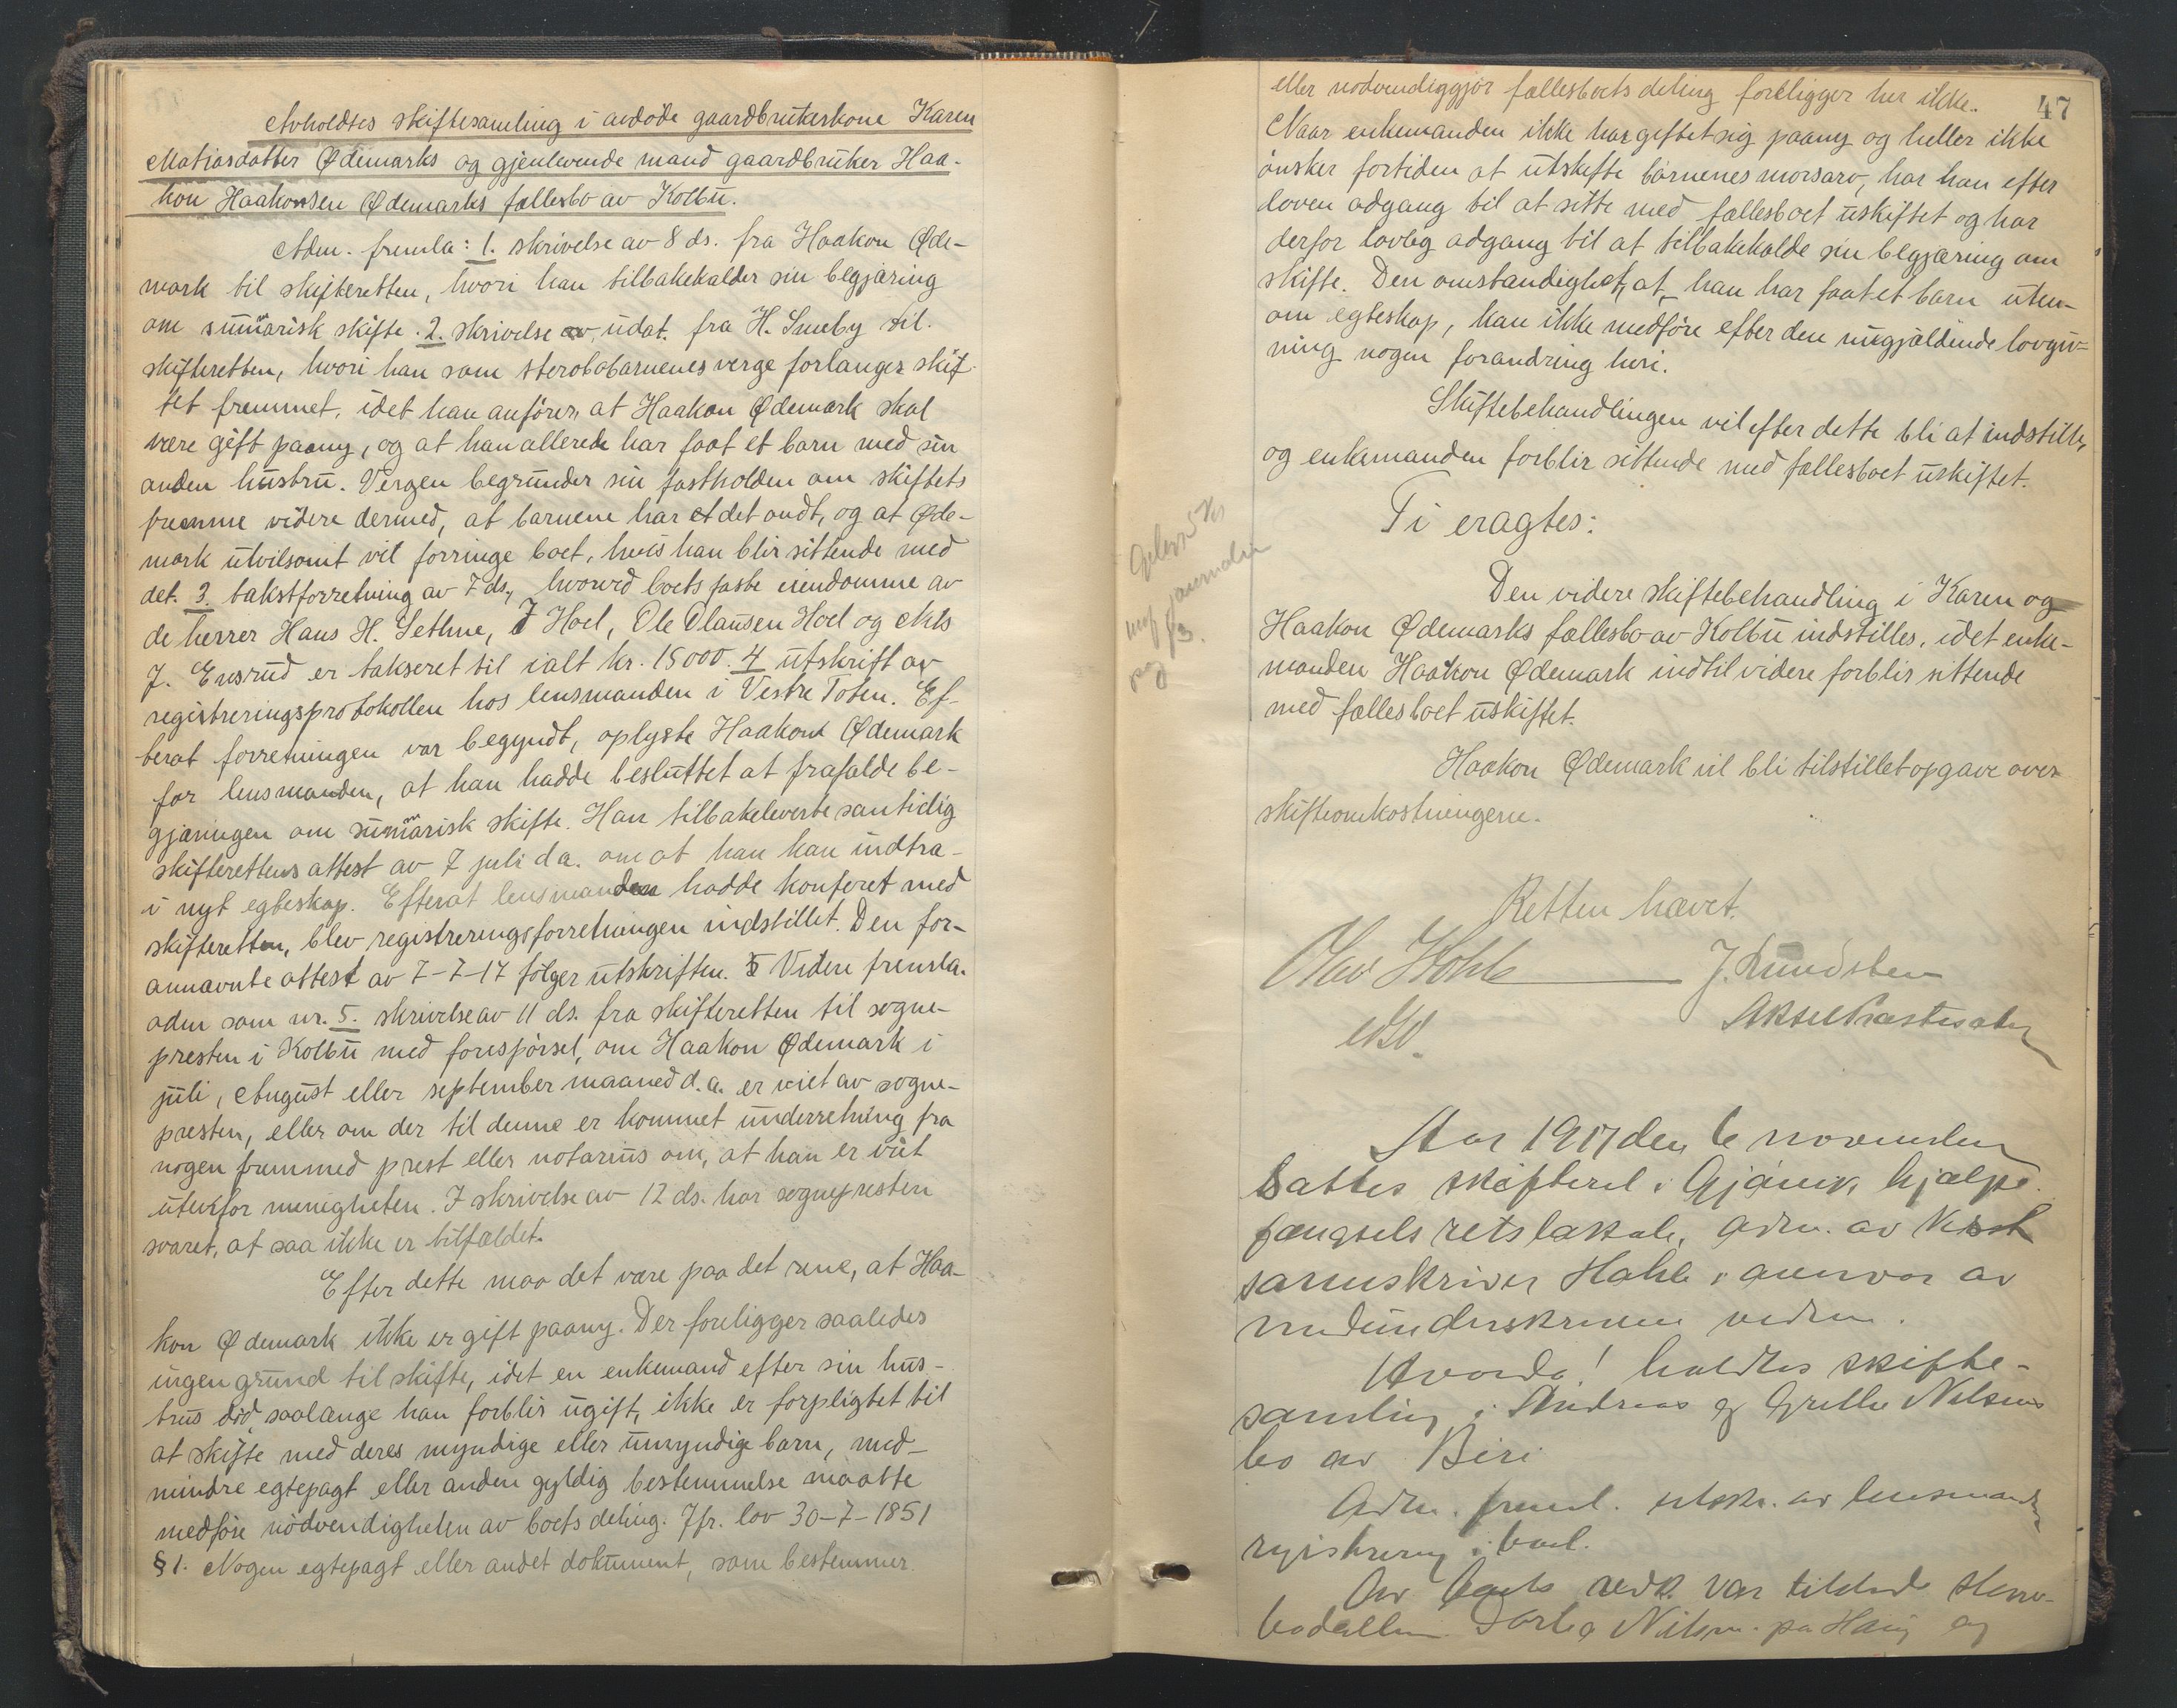 Avholdtes skiftesamling i avdøde gaardbrukerkone Karen
Matiasdatter Ødemarks og gjenlevende mand gaardbruker Haa-
kon Haakonsen Ødemarks fællesbo av Kolbu.
Adm. fremla: 1. skrivelse av 8 ds. fra Haakon Øde-
mark til skifteretten, hvori han tilbakekalder sin begjæring
om summarisk skifte. 2. skrivelse, udat. fra H. Smeby til
skifteretten, hvori han som sterbobarnenes verge forlanger skif-
tet fremmet, idet han anfører, at Haakon Ødemark skal
være gift paany, og at han allerede har faat et barn med sin
anden hustru. Vergen begrunder sin fastholden om skiftets
fremme videre dermed, at barnene har et det ondt, og at Øde-
mark utvilsomt vil forringe boet, hvis han blir sittende med
det. 3. takstforretning av 7 ds., hvorved boets faste eiendomme av
de herrer Hans H. Sethne, J Hoel, Ole Olausen Hoel og Nils
J. Ensrud er takseret til ialt kr. 15000. 4 utskrift av
registreringsprotokollen hos lensmanden i Vestre Toten. Ef-
terat forretningen var begyndt, oplyste Haakon Ødemark
for lensmanden, at han hadde besluttet at frafalde be-
gjæringen om summarisk skifte. Han tilbakeleverte samtidig
skifterettens attest av 7 juli d a. om at han kan indtræ-
i nyt egteskap. Efterat lensmanden hadde konferet med
skifteretten, blev registreringsforretningen indstillet. Den for-
annævnte attest av 7-7-17 følger utskriften. Videre fremla.
adm som nr. 5. skrivelse av 11 ds. fra skifteretten til sogne-
presten i Kolbu med forespørsel, om Haakon Ødemark i
juli, August eller september maaned d. a. er viet av sogne-
presten, eller om der til denne er kommet underretning fra
nogen fremmed prest eller notarius om, at han er viet
utenfor menigheten. I skrivelse av 12 ds. har sognepresten
svaret, at saa ikke er tilfældet.
Efter dette maa det være paa det rene, at Haa-
kon Ødemark ikke er gift paany. Der foreligger saaledes
ingen grund til skifte, idet en enkemand efter sin hus-
trus død saalænge han forblir ugift, ikke er forpligtet til
at skifte med deres myndige eller umyndige barn, med-
mindre egtepagt eller anden gyldig bestemmelse maatte
medføre nødvendigheten av boets deling. Jfr. lov 30-7-1851
§ 1. Nogen egtepagt eller andet dokument, som bestemmer
47
eller nødvendiggjør fællesboets deling foreligger her ikke.
Naar enkemanden ikke har giftet sig paany og heller ikke
ønsker fortiden at utskifte barnenes morsarv, har han efter
loven adgang til at sitte med fællesboet uskiftet og har
derfor lovlig adgang til at tilbakekalde sin begjæring om
skifte. Den omstændighet, at han har faat et barn uten-
om egteskap, kan ikke medføre efter den nugjældende lovgiv-
ning nogen forandring heri.
Skiftebehandlingen vil efter dette bli at indstille,
og enkemanden forblir sittende med fællesboet uskiftet.
Ti eragtes:
Den videre skiftebehandling i Karen og
Haakon Ødemarks fællesbo av Kolbu indstilles, idet enke-
manden Haakon Ødemark indtil videre forblir sittende
med fællesboet uskiftet.
Haakon Ødemark vil bli tilstillet opgave over
skifteomkostningerne.
Retten hævet.
J. Lundsten
Aar 1917 den 6 november
sattes skifteret i Gjøvik hjælpe
fængsels retslokale, adm. av
sorenskriver i nærvær av
medunderskrevne vidner.
Hvorda! holdtes skifte-
samling i Andreas og Nilsens
bo av Biri
Adm. freml. utskr. av lensmandens
registrering i boet.
Av boets vedk. var tilstede
Nilsen paa Haug og